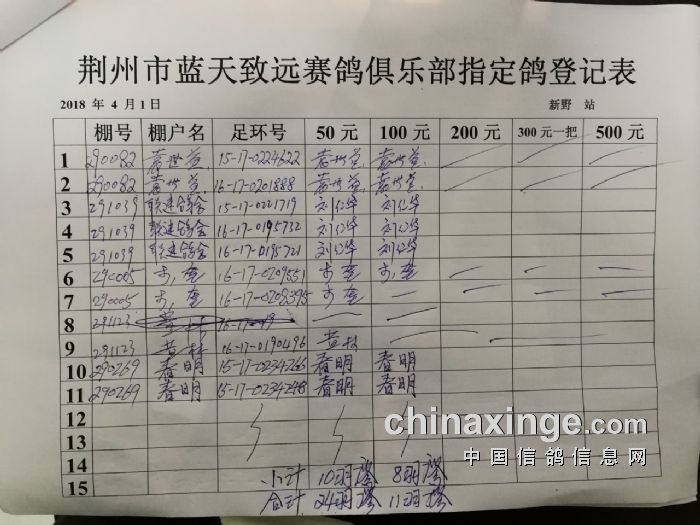 荆州市蓝天致远赛鸽俱乐部指定鸽登记表
2018 年 4 月 1 日 新野 站
棚号 棚户名 足环号 50 元 100 元 200 元 300 元一把 500 元
1 290082 15-17-0224622
2 290082 16-17-0201888
3 291039 联建鸽舍 15-17-0221719 刘仁华 刘仁华
4 291039 联建鸽舍 16-17-0195732 刘仁华 刘仁华
5 291039 联建鸽舍 16-17-0195721 刘仁华 刘仁华
6 290005 16-17-0209551
7 290005 16-17-0208395
8 291123
9 291123 黄林 16-17-0190496 黄林
10 290269 春明 15-17-0234266 春明 春明
11 290269 春明 15-17-0234248 春明 春明
12
13
14
小计 10羽 8羽
15
合计 24羽 11羽
chinaxinge.com
中国信鸽信息网